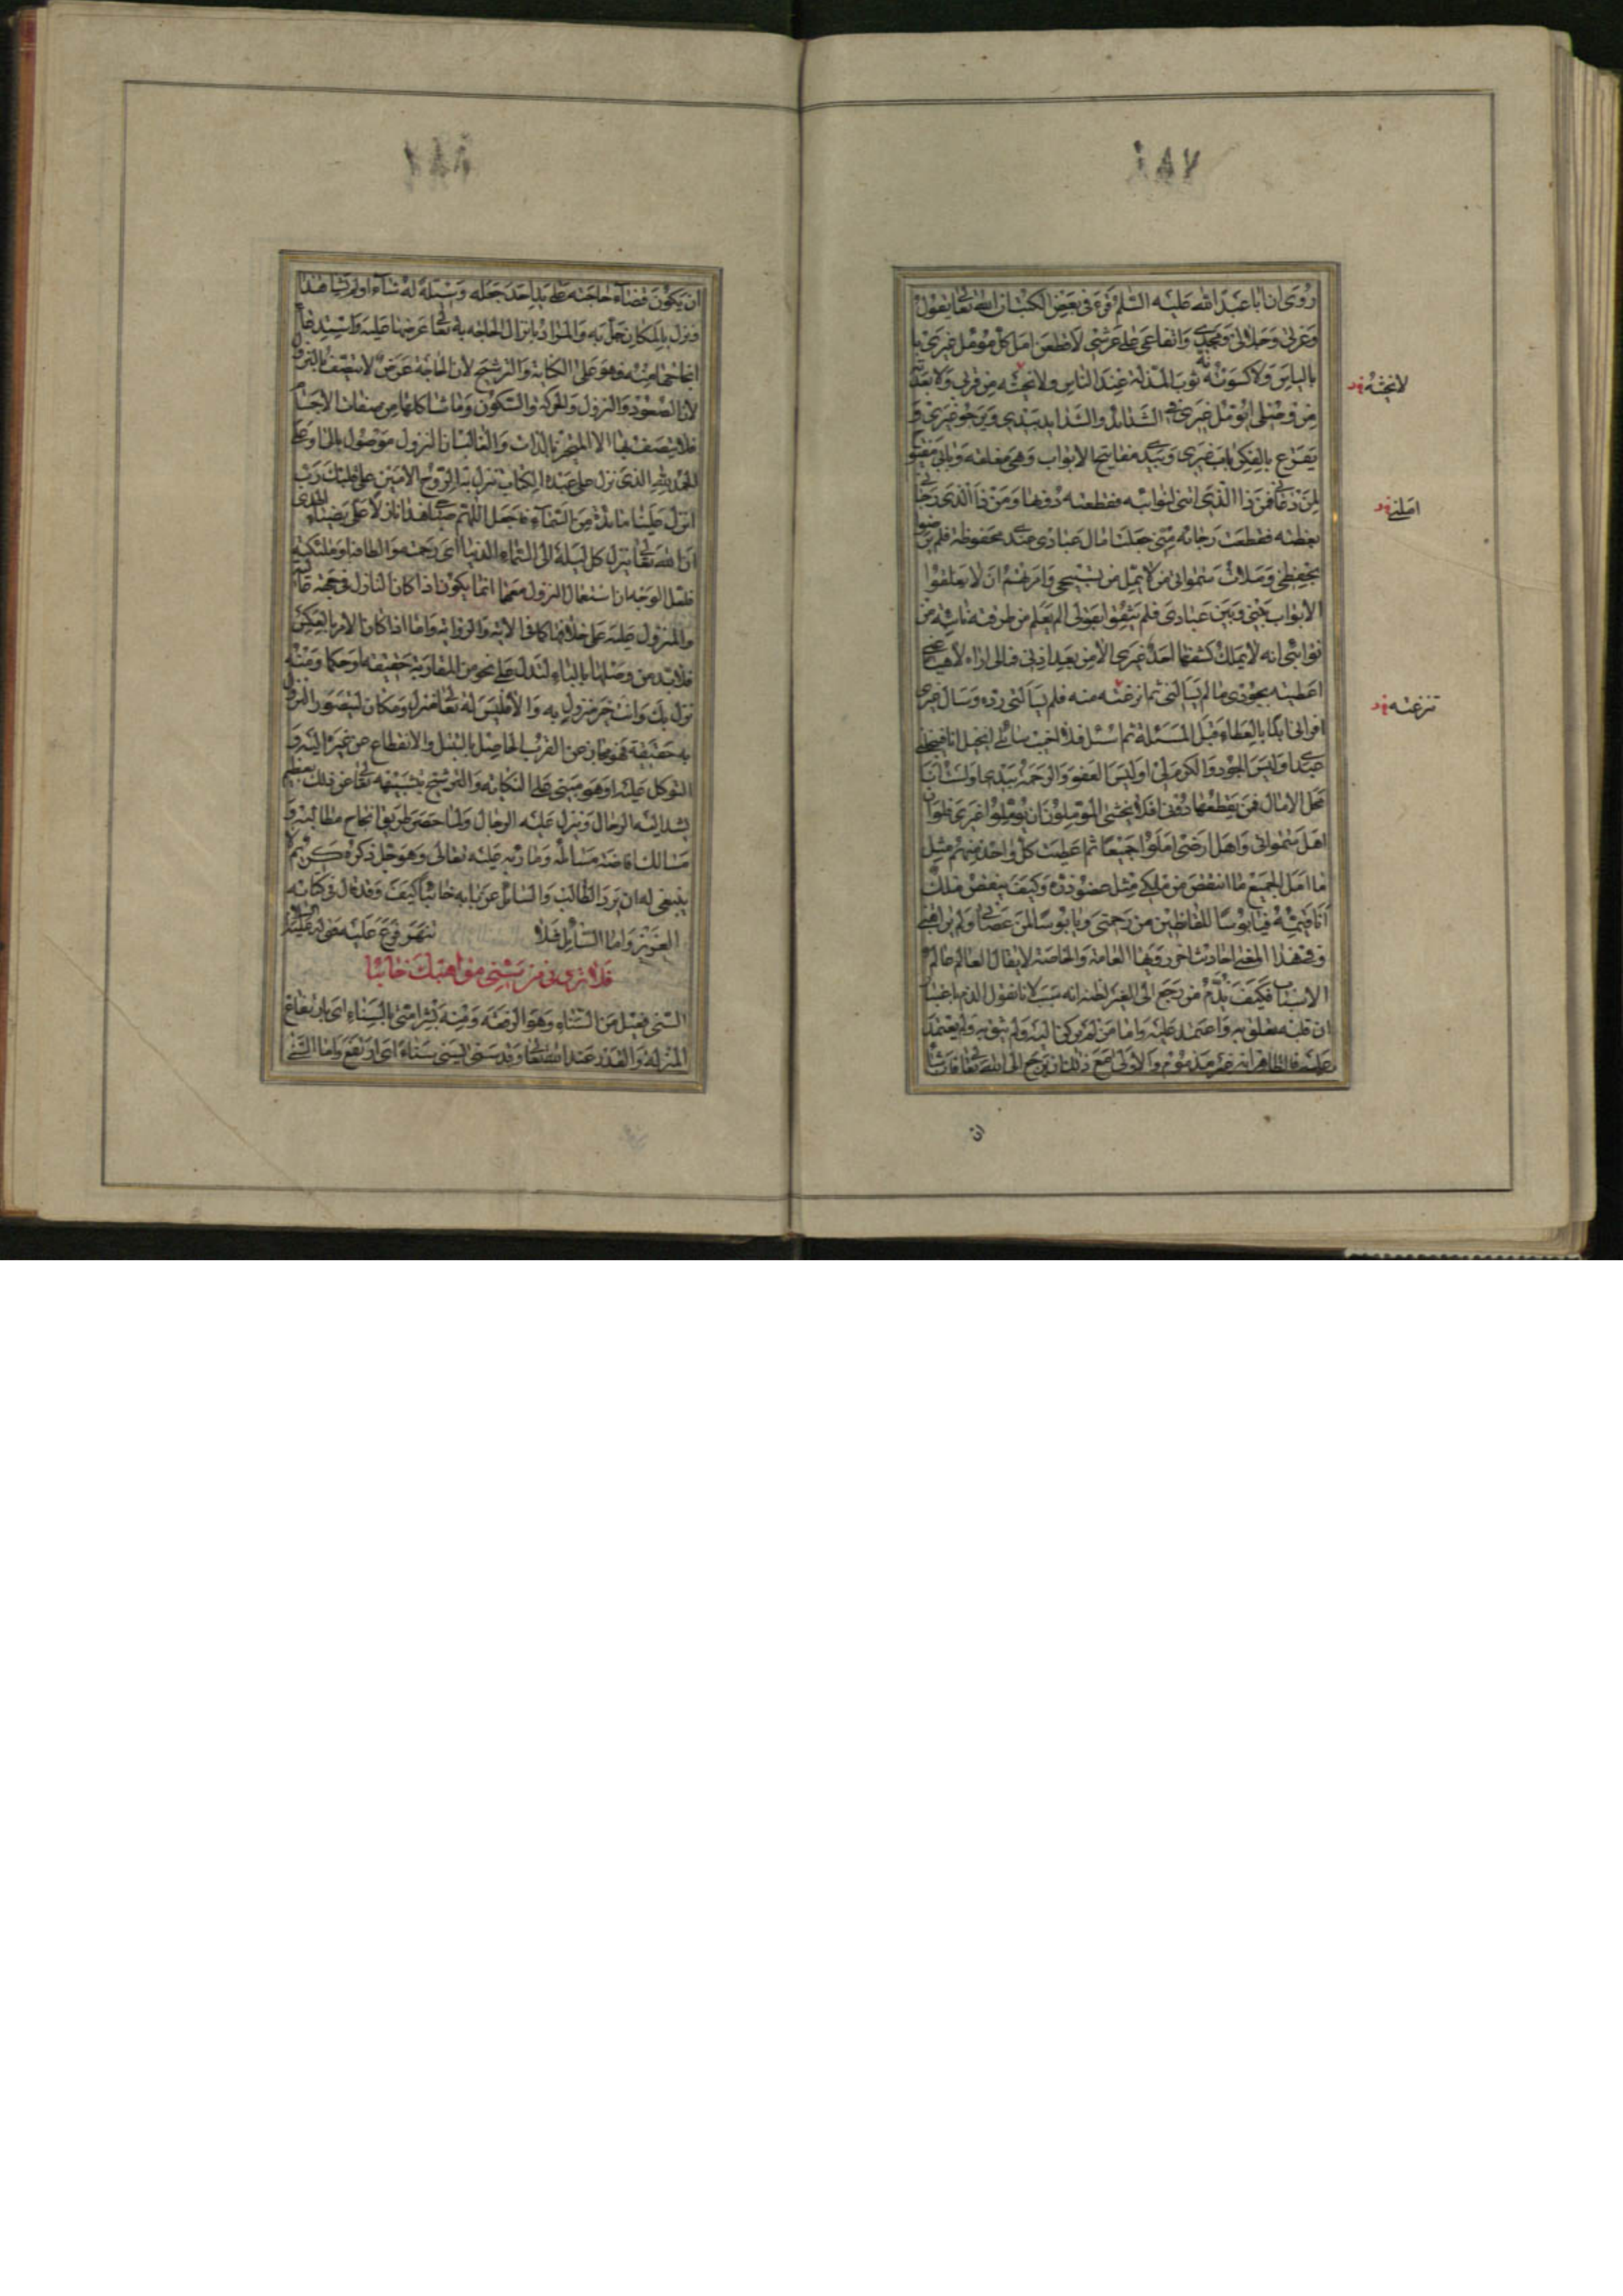 روى ان ابا عبد الله عليه السلم قرء فى بعض الكتب ان الله تعالى يقول
وعزتى وجلالى ومجدى وارتفاعى على عرشى لاقطعن امل كل مؤمل غيرى
بالياس ولاكسونه ثوب المذلة عند الناس ولانحينه من قربى ولابعدنه
من فضلى ايؤمل غيرى فى الشدائد والشدائد بيدى ويرجو غيرى و
يقرع بالفكر باب غيرى وبيدى مفاتيح الابواب وهى مغلقة وبابى مفتوح
لمن دعانى فمن ذا الذى املنى لنوائبه فقطعته دونها ومن ذا الذى رجانى
لعظيمة فقطعت رجائه منى جعلت امال عبادى عندى محفوظة فلم يرضوا
بحفظى وملات سمواتى ممن لا يمل من تسبيحى وامرتهم ان لا يغلقوا
الابواب بينى وبين عبادى فلم يثقوا بقولى الم يعلم من طرقته نائبة من
نوائبى انه لا يملك كشفها احد غيرى الا من بعد اذنى فمالى اراه لاهيا عنى
اعطيته بجودى ما لم يسالنى ثم انتزعته منه فلم يسالنى رده وسال غيرى
افرانى ابدأ بالعطاء قبل المسئلة ثم اسئل فلا اجيب سائلى ابخيل انا فيبخلنى
عبدى اوليس الجود والكرم لى اوليس العفو والرحمة بيدى اولست انا
محل الامال فمن يقطعها دونى افلا يخشى المؤملون ان يؤملوا غيرى فلو ان
اهل سمواتى واهل ارضى املوا جميعا ثم اعطيت كل واحد منهم مثل
ما امل الجميع ما انتقص من ملكى مثل عضو ذرة وكيف ينقص ملك
انا قيمه فيا بؤسا للقانطين من رحمتى ويا بؤسا لمن عصانى ولم يراقبنى
وفى هذا المعنى احاديث اخر روتها العامة والخاصة لا يقال العالم عالم
الاسباب فكيف يذم من رجع الى الغير لظنه انه سبب لانا نقول الذم باعتبار
ان قلبه تعلق به واعتمد عليه واما من لم يركن اليه ولم يثق به ولم يعتمد
عليه فالظاهر انه غير مذموم والاولى مع ذلك ان يرجع الى الله تعالى فان شاء
لانحينه
املنى
انتزعته
ان
ان يكون قضاء حاجته على يد احد جعله وسيلة له شاء او لم يشا هذا
ونزل بالمكان حل به والمراد بانزال الحاجة به تعالى عرضها عليه
وهو على الكناية والترشيح لان الحاجة عرض لا يتصف بالنزول
لان الصعود والنزول والحركة والسكون وما شاكلها من صفات الاجسام
فلا يتصف بها الا المتحيز بالذات والغالب ان النزول موصول بالى او على
الحمد لله الذى نزل على عبده الكتاب نزل به الروح الامين على قلبك رب
انزل علينا مائدة من السماء
ان الله تعالى ينزل كل ليلة الى السماء الدنيا اى رحمته والطافه وملئكته
فلعل الوجه ان استعمال النزول معها انما يكون اذا كان النازل فى جهة
والمنزول عليه على خلافها كما فى الاية والرواية واما اذا كان الامر بالعكس
فلا بد من وصلها بالباء لتدل على نحو من المقاربة حقيقة او حكما ومنه
نزل بك وانت خير منزول به والا فليس له تعالى منزل ومكان ليتصور النزول
به حقيقة فهو مجاز عن القرب الحاصل بالتبتل والانقطاع عن غيره اليه و
التوكل عليه او هو مبنى على الكناية والترشيح بتشبيهه تعالى عن ذلك بعظيم
يشد اليه الرحال وينزل عليه الرجال ولما حصر طريق انجاح مطالبه و
مسالك افاضة مسائله وماربه عليه تعالى وهو جل ذكره كريم لا
ينبغى له ان يرد الطالب والسائل عن بابه خائبا كيف وقد قال فى كتابه
العزيز واما السائل فلا تنهر فرع عليه قوله عليه السلام
فلا ترى من سنى مواهبك خائبا
السنى فعيل من السناء وهو الرفعة ومنه بشر امتى بالسناء اى بارتفاع
المنزلة والقدر عند الله تعالى وقد سنى يسنى سناء اى ارتفع واما السنى